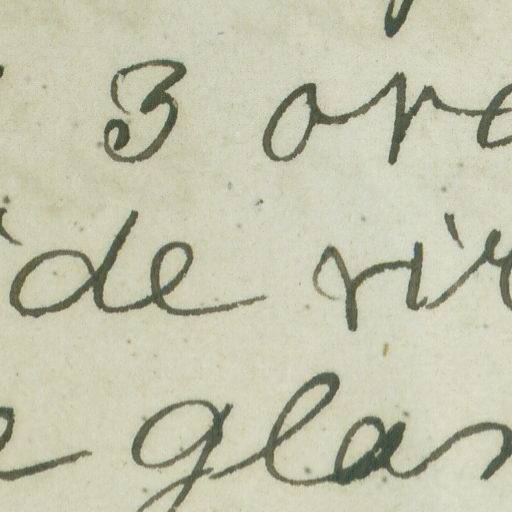 3 ore
ide vir
e glan